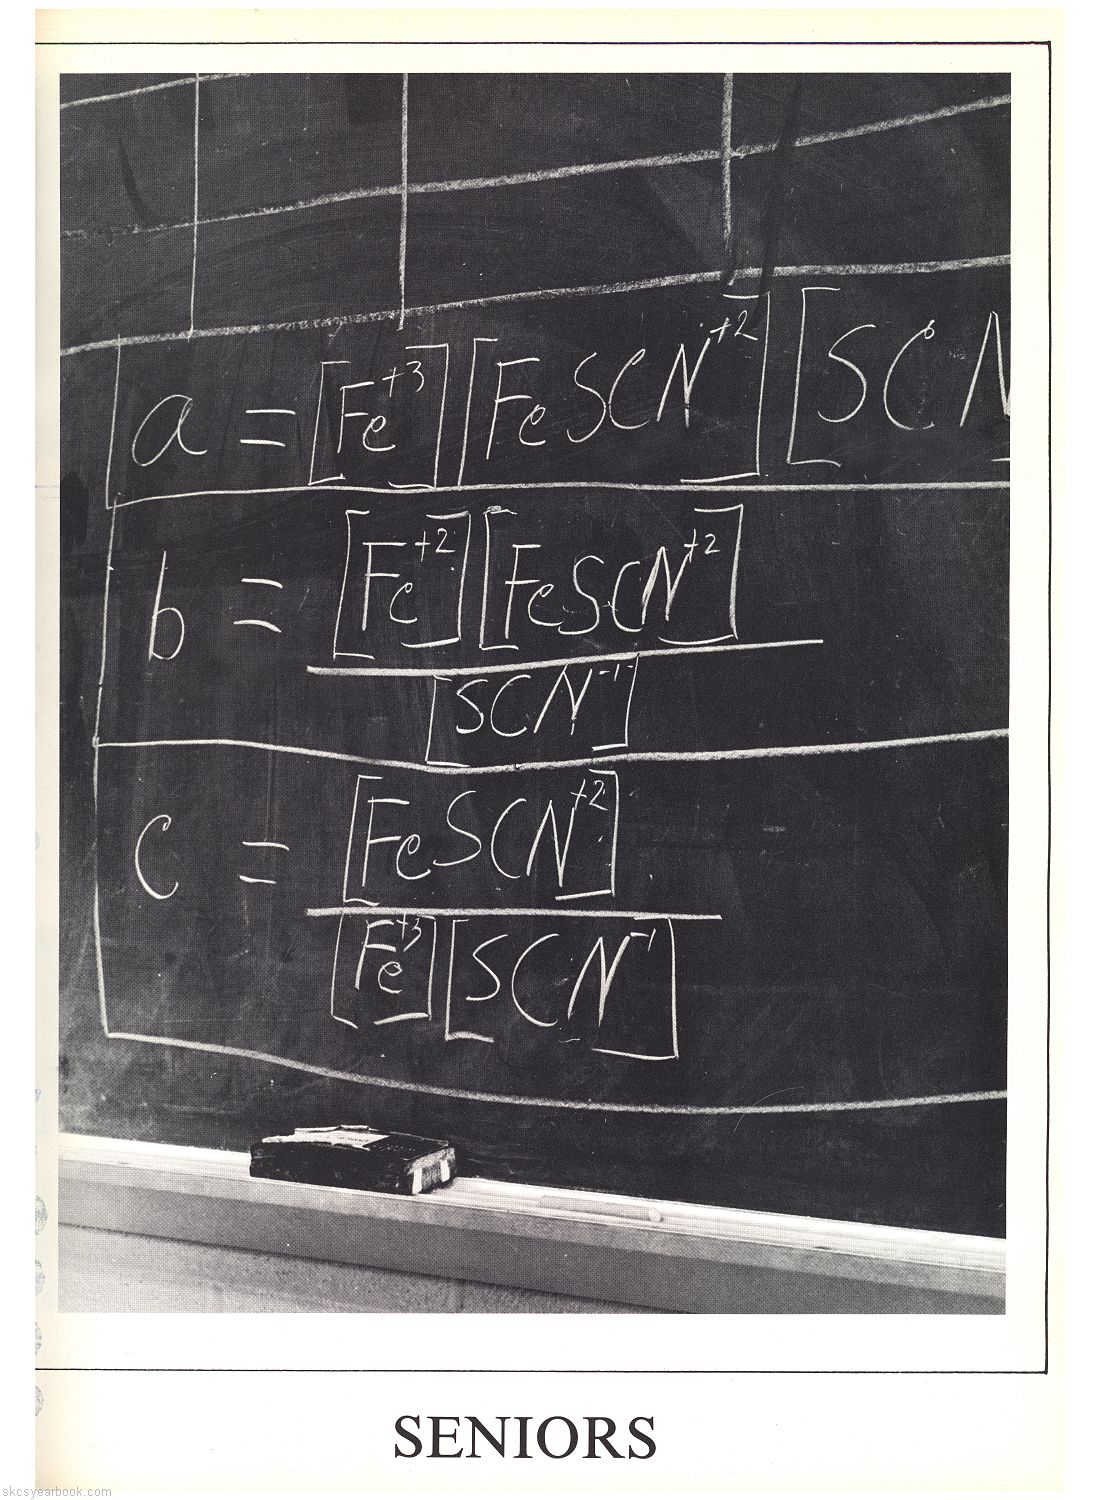 a = [Fe+3] [FeSCN+2] [SCN
b = [Fe+2] [FeSCN+2]
[SCN-1]
c = [FeSCN+2]
[Fe+3] [SCN-1]
SENIORS
skcsyearbook.com